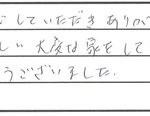 していただき ありが
しい 大変な をして
うございました.